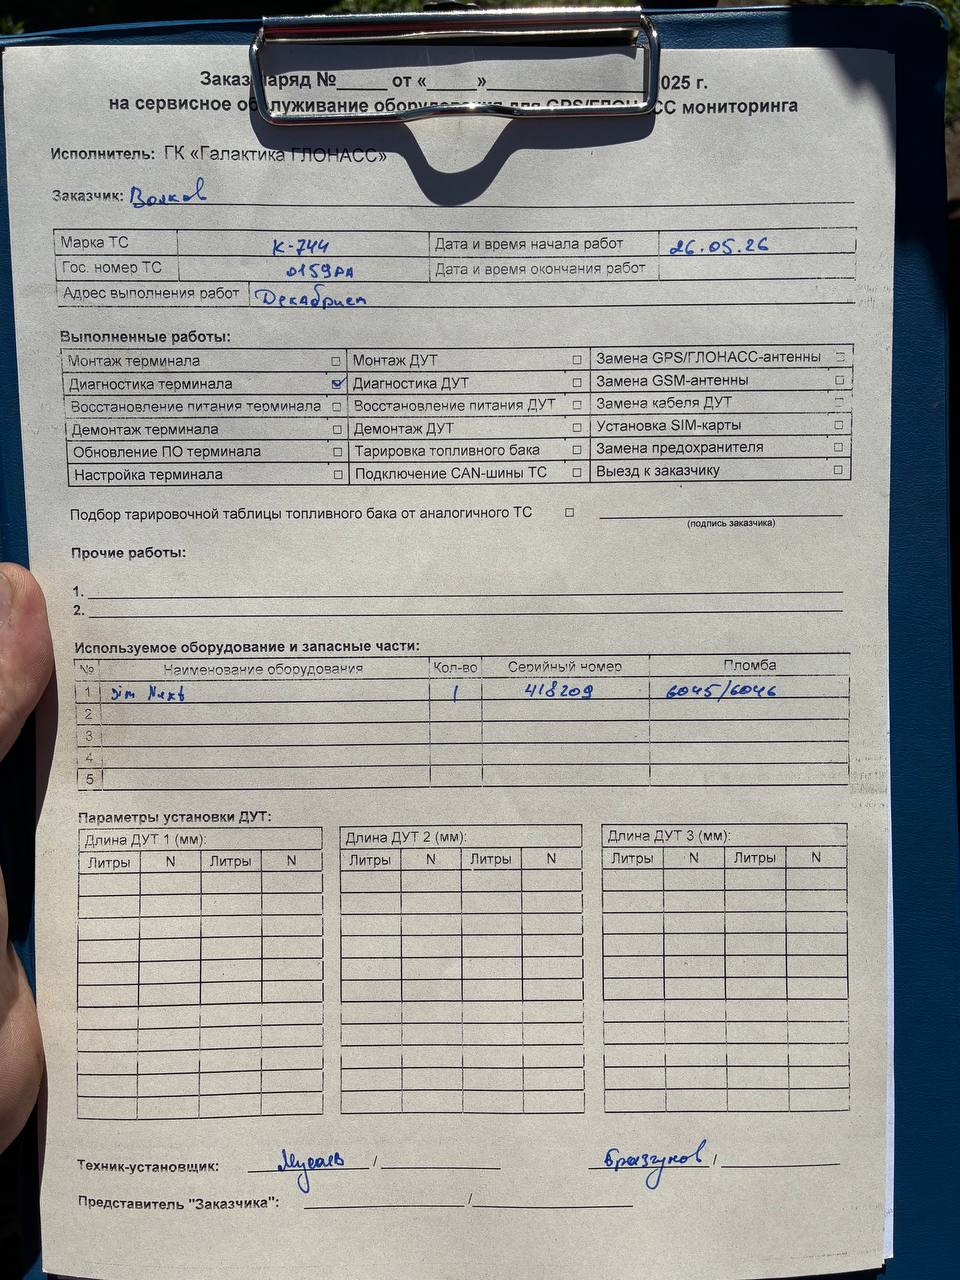 Заказ наряд №_____ от «_____» 025 г.
на сервисное обслуживание оборудования для GPS/ГЛОНАСС мониторинга
Исполнитель: ГК «Галактика ГЛОНАСС»
Заказчик: Волков
Марка ТС К-744 Дата и время начала работ 26.05.26
Гос. номер ТС 0159РА Дата и время окончания работ
Адрес выполнения работ
Выполненные работы:
Монтаж терминала □ Монтаж ДУТ □ Замена GPS/ГЛОНАСС-антенны □
Диагностика терминала ☑ Диагностика ДУТ □ Замена GSM-антенны □
Восстановление питания терминала □ Восстановление питания ДУТ □ Замена кабеля ДУТ □
Демонтаж терминала □ Демонтаж ДУТ □ Установка SIM-карты □
Обновление ПО терминала □ Тарировка топливного бака □ Замена предохранителя □
Настройка терминала □ Подключение CAN-шины ТС □ Выезд к заказчику □
Подбор тарировочной таблицы топливного бака от аналогичного ТС □
(подпись заказчика)
Прочие работы:
1.
2.
Используемое оборудование и запасные части:
№ Наименование оборудования Кол-во Серийный номер Пломба
1 1 418209 6045/6046
2
3
4
5
Параметры установки ДУТ:
Длина ДУТ 1 (мм): Длина ДУТ 2 (мм): Длина ДУТ 3 (мм):
Литры N Литры N Литры N Литры N Литры N Литры N
Техник-установщик: Мусаев / Бразгунов /
Представитель "Заказчика": /